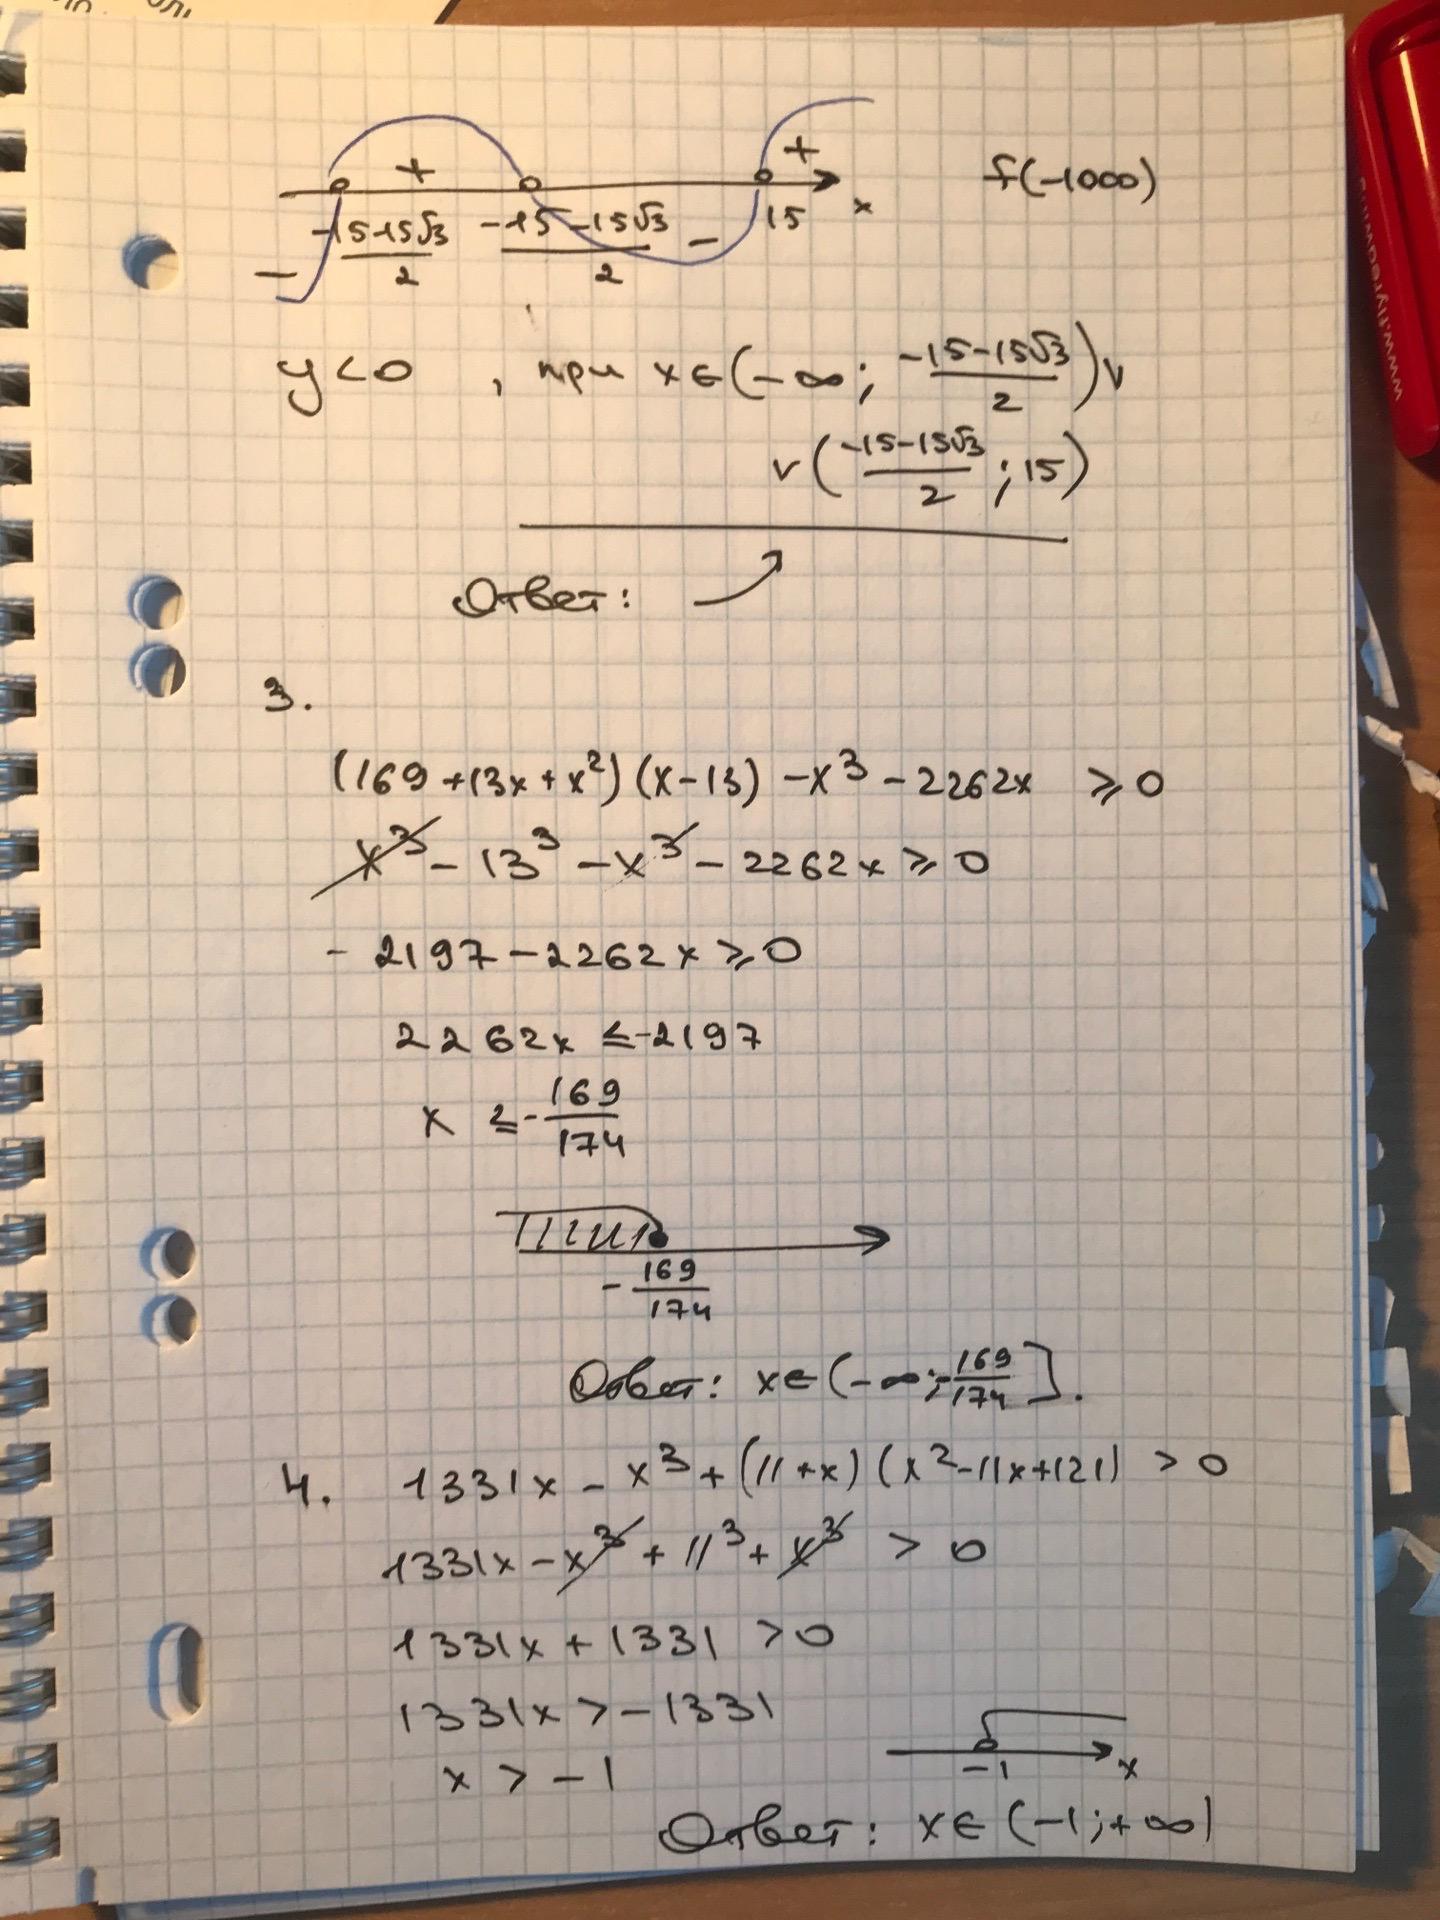 + + f(-1000)
-15-15√3/2 -15-15√3/2 - 15 x
-
y<0, при x∈(-∞; -15-15√3/2)∨
∨(-15-15√3/2; 15)
Ответ:
3.
(169+13x+x²)(x-13)-x³-2262x ≥0
x³-13³-x³-2262x≥0
-2197-2262x≥0
2262x ≤-2197
x ≤-169/174
-169/174
Ответ: x∈(-∞;-169/174].
4. 1331x-x³+(11+x)(x²-11x+121)>0
1331x-x³+11³+x³ >0
1331x+1331 >0
1331x>-1331
x>-1
-1 x
Ответ: x∈(-1;+∞)
www.flyredwings